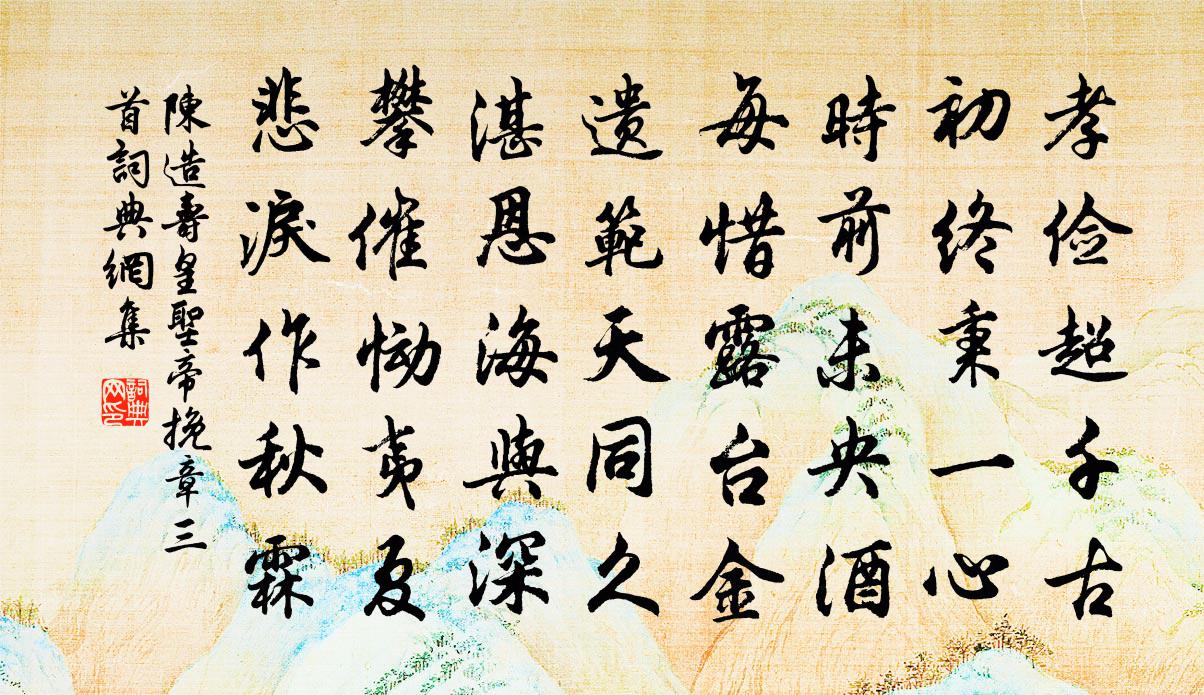 孝俭超千古
初终秉一心
時前未央酒
每惜露台金
遗範天同久
湛恩海與深
攀催恸夷夏
悲淚作秋霖
陳造壽皇聖帝挽章三
首詞典網集
詞典网印